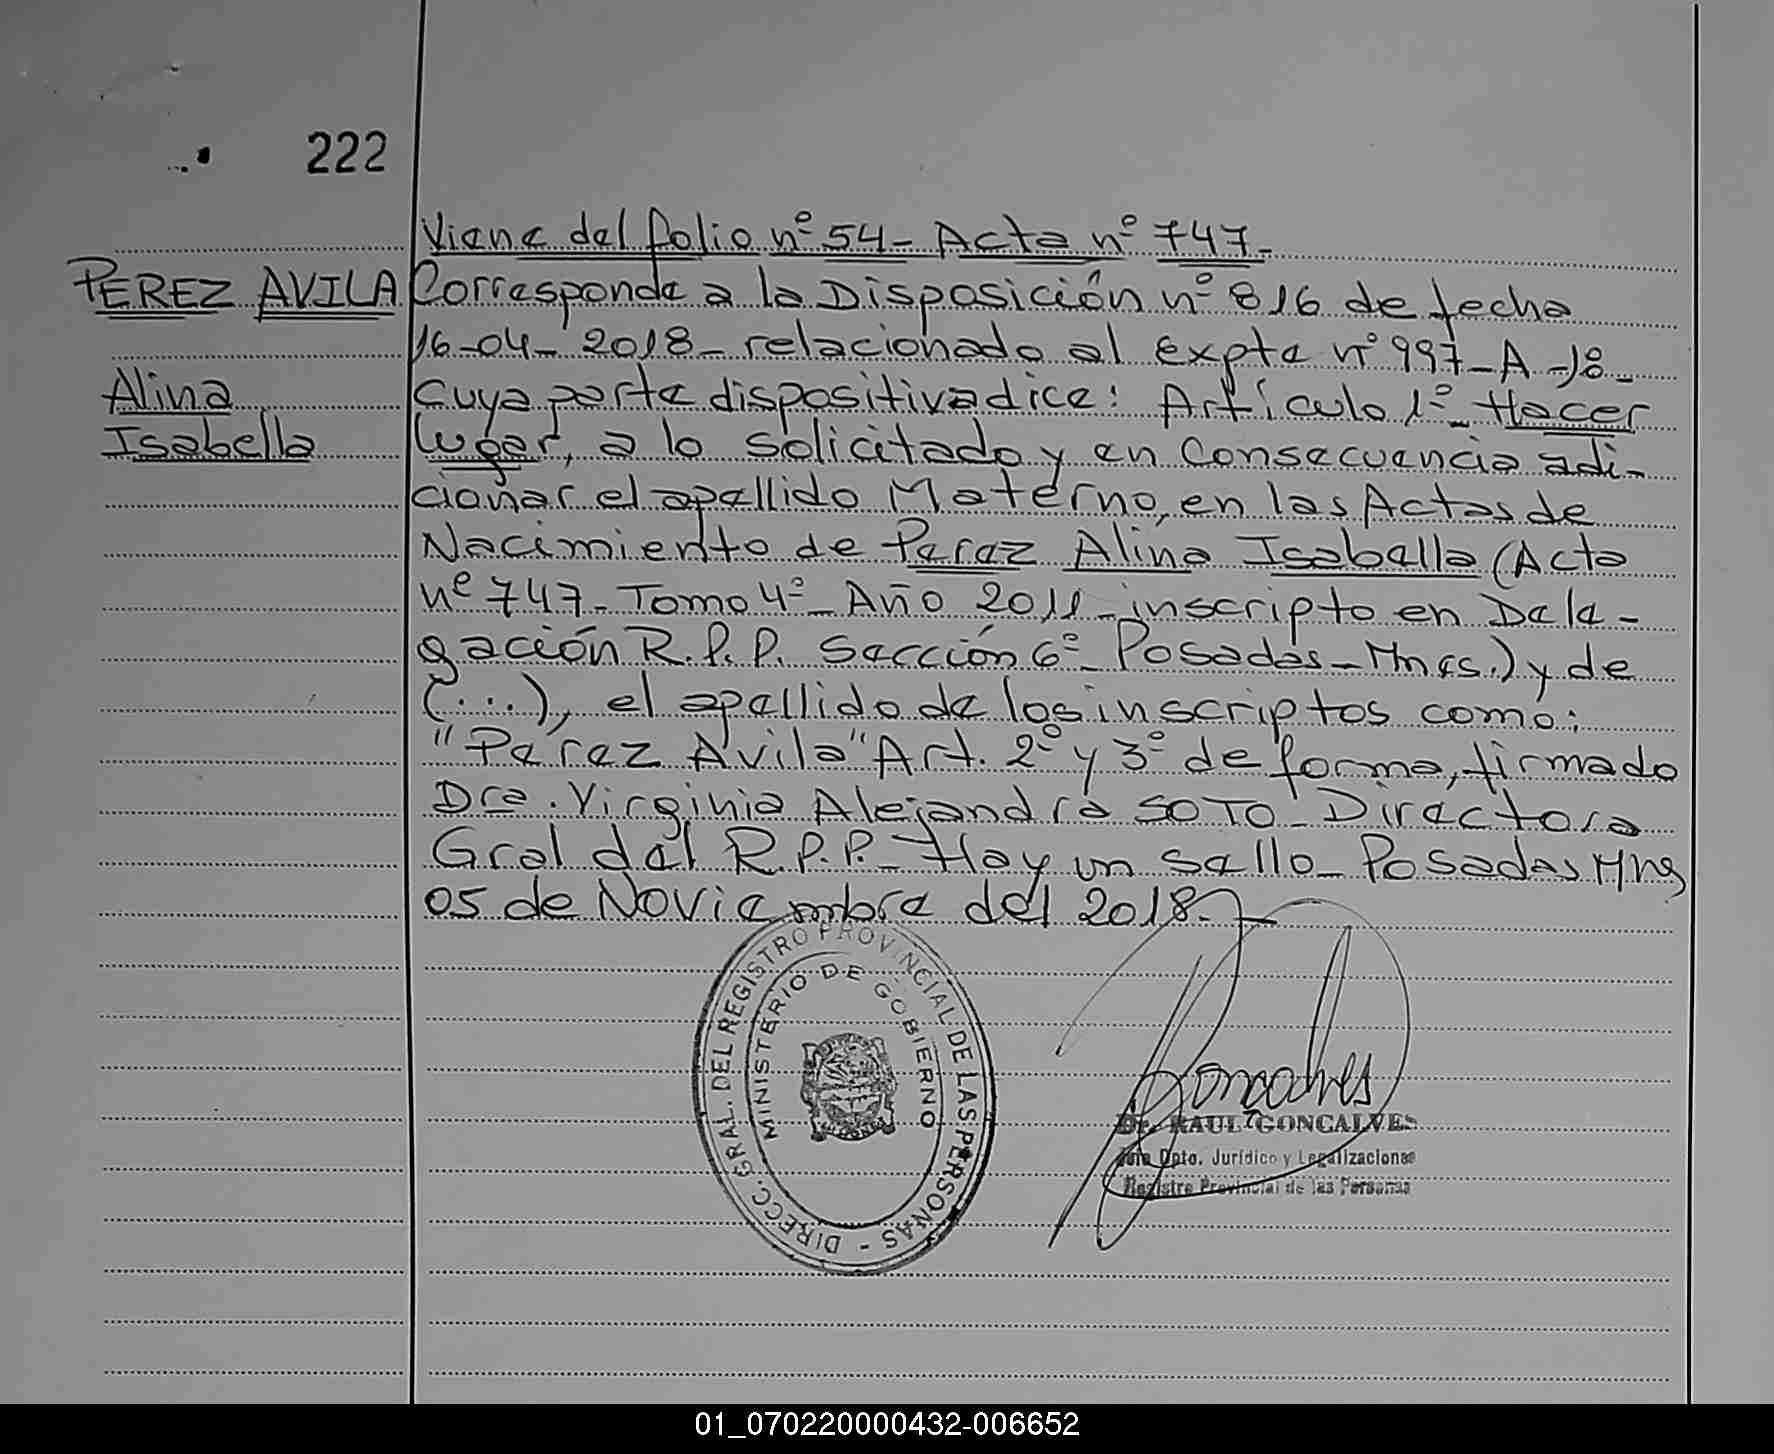 222
Viene del folio nº 54- Acta nº 747-
PEREZ AVILA
Corresponde a la Disposición nº 816 de fecha
16-04-2018- relacionado al expte nº 997-A-18-
Alina
Cuya parte dispositiva dice: Artículo 1º- Hacer
Isabella
lugar, a lo solicitado y en Consecuencia adi-
cionar el apellido Materno, en las Actas de
Nacimiento de Perez Alina Isabella (Acta
nº 747- Tomo 4º- Año 2011- inscripto en Dele-
gación R.P.P. Sección 6º- Posadas- Mnes.) y de
(...), el apellido de los inscriptos como:
"Perez Avila" Art. 2º y 3º de forma, firmado
Dra. Virginia Alejandra SOTO- Directora
Gral del R.P.P.- Hay un sello- Posadas Mns
05 de Noviembre del 2018.-
DIRECC. GRAL. DEL REGISTRO PROVINCIAL DE LAS PERSONAS -
MINISTERIO DE GOBIERNO
Goncalves
Dr. RAUL GONCALVES
Jefe Dpto. Jurídico y Legalizaciones
Registro Provincial de las Personas
01_070220000432-006652